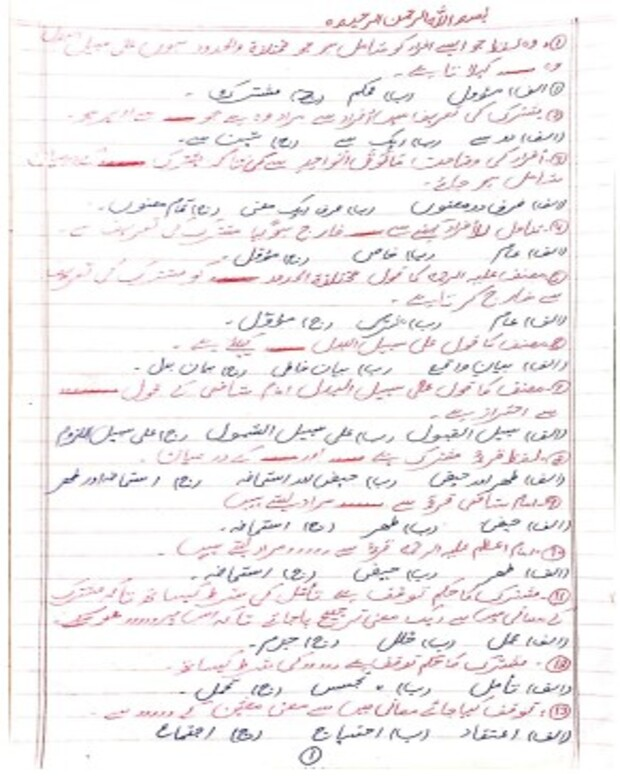 بسم اللہ الرحمن الرحیم
①۔ وہ لفظ جو ایسے افراد کو شامل ہو جو مختلفۃ الحدود ہوں علی سبیل البدل
وہ ــــ کہلاتا ہے۔
(الف) مؤول (ب) محکم (ج) مشترک۔
②۔ مشترک کی تعریف میں افراد سے مراد وہ ہے جو ــــ سے اوپر ہو۔
(الف) دو سے (ب) ایک سے (ج) تین سے۔
③۔ افراد کی وضاحت مافوق الواحد سے کی تاکہ مشترک ــــ کے درمیان
شامل ہو جائے۔
(الف) صرف دو معنوں (ب) صرف ایک معنی (ج) تمام معنوں۔
④۔ تناول الافراد کہنے سے ــــ خارج ہو گیا مشترک کی تعریف سے۔
(الف) عام (ب) خاص (ج) مؤول۔
⑤۔ مصنف علیہ الرحمہ کا قول مختلفۃ الحدود ــــ کو مشترک کی تعریف
سے خارج کرتا ہے۔
(الف) عام (ب) (ج) مؤول۔
⑥۔ مصنف کا قول علی سبیل البدل ــــ کیلئے ہے۔
(الف) بیان واقع (ب) بیان (ج) بیان
⑦۔ مصنف کا قول علی سبیل البدل امام شافعی کے قول ــــ
سے احتراز ہے۔
(الف) سبیل القبول (ب) علی سبیل الشمول (ج) علی سبیل اللزوم
⑧۔ لفظ قروء مشترک ہے ــــ اور ــــ کے درمیان۔
(الف) طہر اور حیض (ب) حیض اور استحاضہ (ج) استحاضہ اور طہر
⑨۔ امام شافعی قروء سے ــــ مراد لیتے ہیں
(الف) حیض (ب) طہر (ج) استحاضہ۔
⑩۔ امام اعظم علیہ الرحمہ قروء سے ۔۔۔۔۔ مراد لیتے ہیں۔
(الف) طہر (ب) حیض (ج) استحاضہ۔
⑪۔ مشترک کا حکم توقف ہے تأمل کی شرط کیساتھ تاکہ مشترک
کے معانی میں سے ایک معنی ترجیح پا جائے تاکہ اس پر ۔۔۔۔ ہو سکے۔
(الف) عمل (ب) خلل (ج) جرم۔
⑫۔ مشترک کا حکم توقف ہے ۔۔۔۔ کی شرط کیساتھ۔
(الف) تأمل (ب) تجسس (ج) تحمل۔
⑬۔ توقف کیا جائے معانی میں سے معنی معین کے ۔۔۔۔ سے۔
(الف) اعتقاد (ب) احتیاج (ج) اجتماع
①